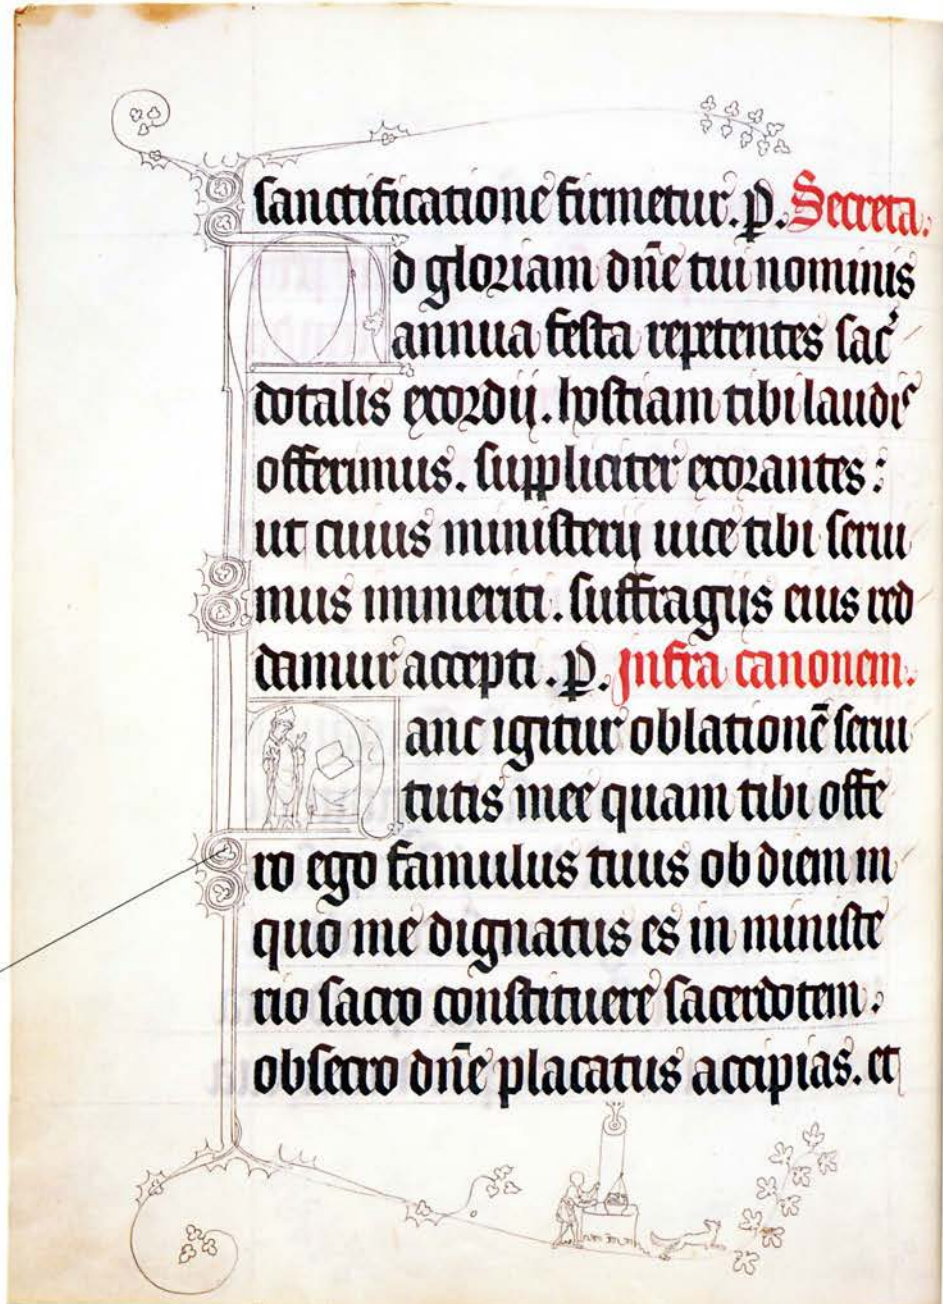 sanctificatione firmetur. p. Secreta.
d gloriam dñe tui nominis
annua festa repetentes sac͛
dotalis exordij. hostiam tibi laudis
offerimus. suppliciter exorantes :
ut cuius ministerij uice tibi serui
mus immeriti. suffragijs eius red
damur accepti. p. Infra canonem.
anc igitur oblationē serui
tutis mee quam tibi offe
ro ego famulus tuus ob diem in
quo me dignatus es in ministe
rio sacro constituere sacerdotem.
obsecro dñe placatus accipias. et